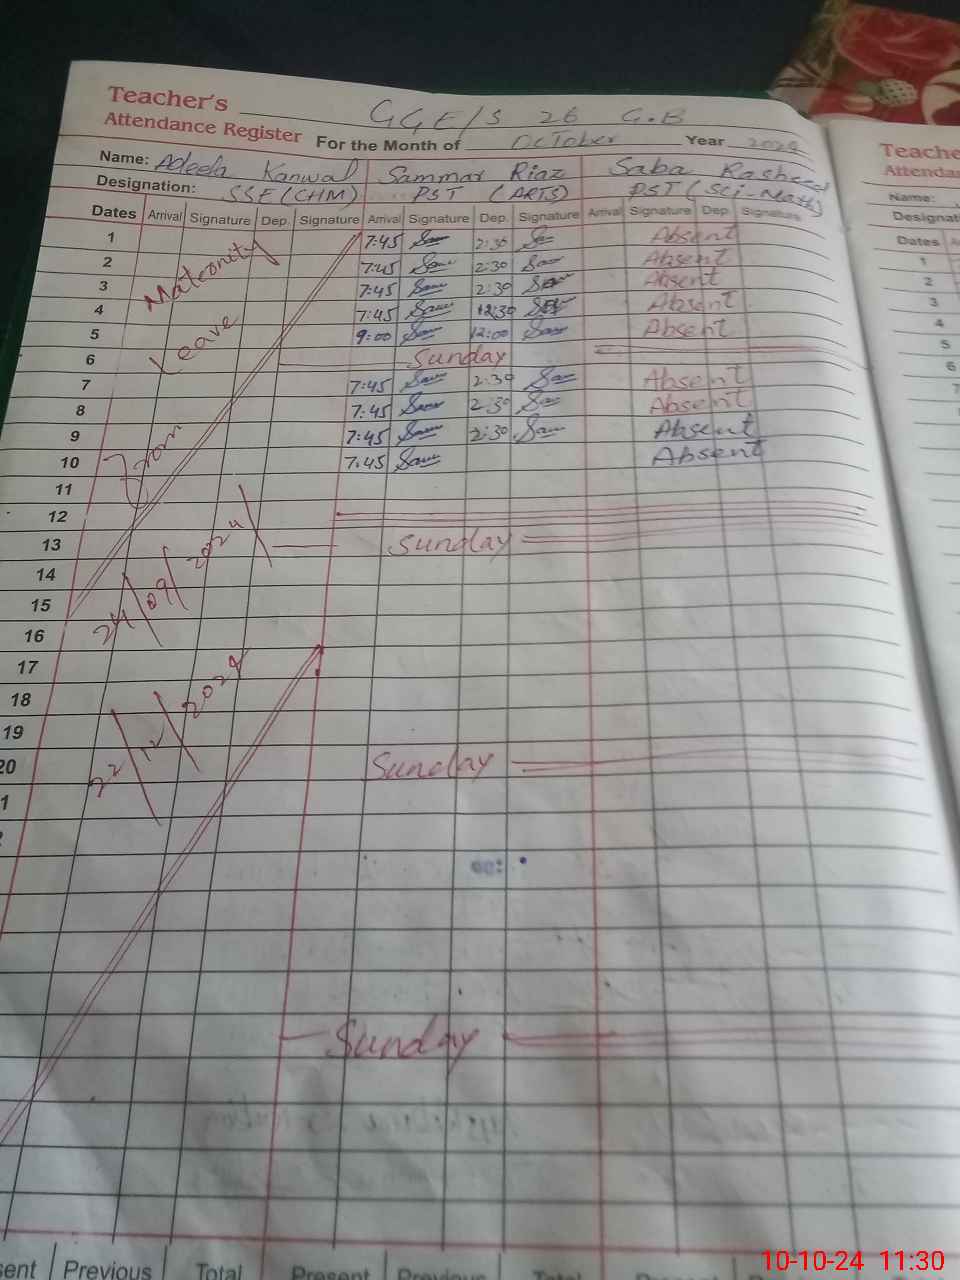 Teacher's GGE/S 26 G.B
Attendance Register For the Month of October Year 2024
Name: Adeela Kanwal Sammar Riaz Saba Rasheed
Designation: SSE (CHM) PST (ARTS) PST (Sci-Math)
Dates Arrival Signature Dep. Signature Arrival Signature Dep. Signature Arrival Signature Dep. Signature
1 7:45 2:30 Absent
2 Maternity 7:45 2:30 Absent
3 7:45 2:30 Absent
4 Leave 7:45 12:30 Absent
5 9:00 12:00 Absent
6 Sunday
7 7:45 2:30 Absent
8 7:45 2:30 Absent
9 From 7:45 2:30 Absent
10 7:45 Absent
11
12
13 Sunday
14
15 24/09/2024
16
17
18
19 22/12/2024
20 Sunday
1
Sunday
sent Previous Total Present Previous Total Present Previous Total
Teache
Attendan
Name:
Designat
Dates A
1
2
3
4
5
6
7
10-10-24 11:30